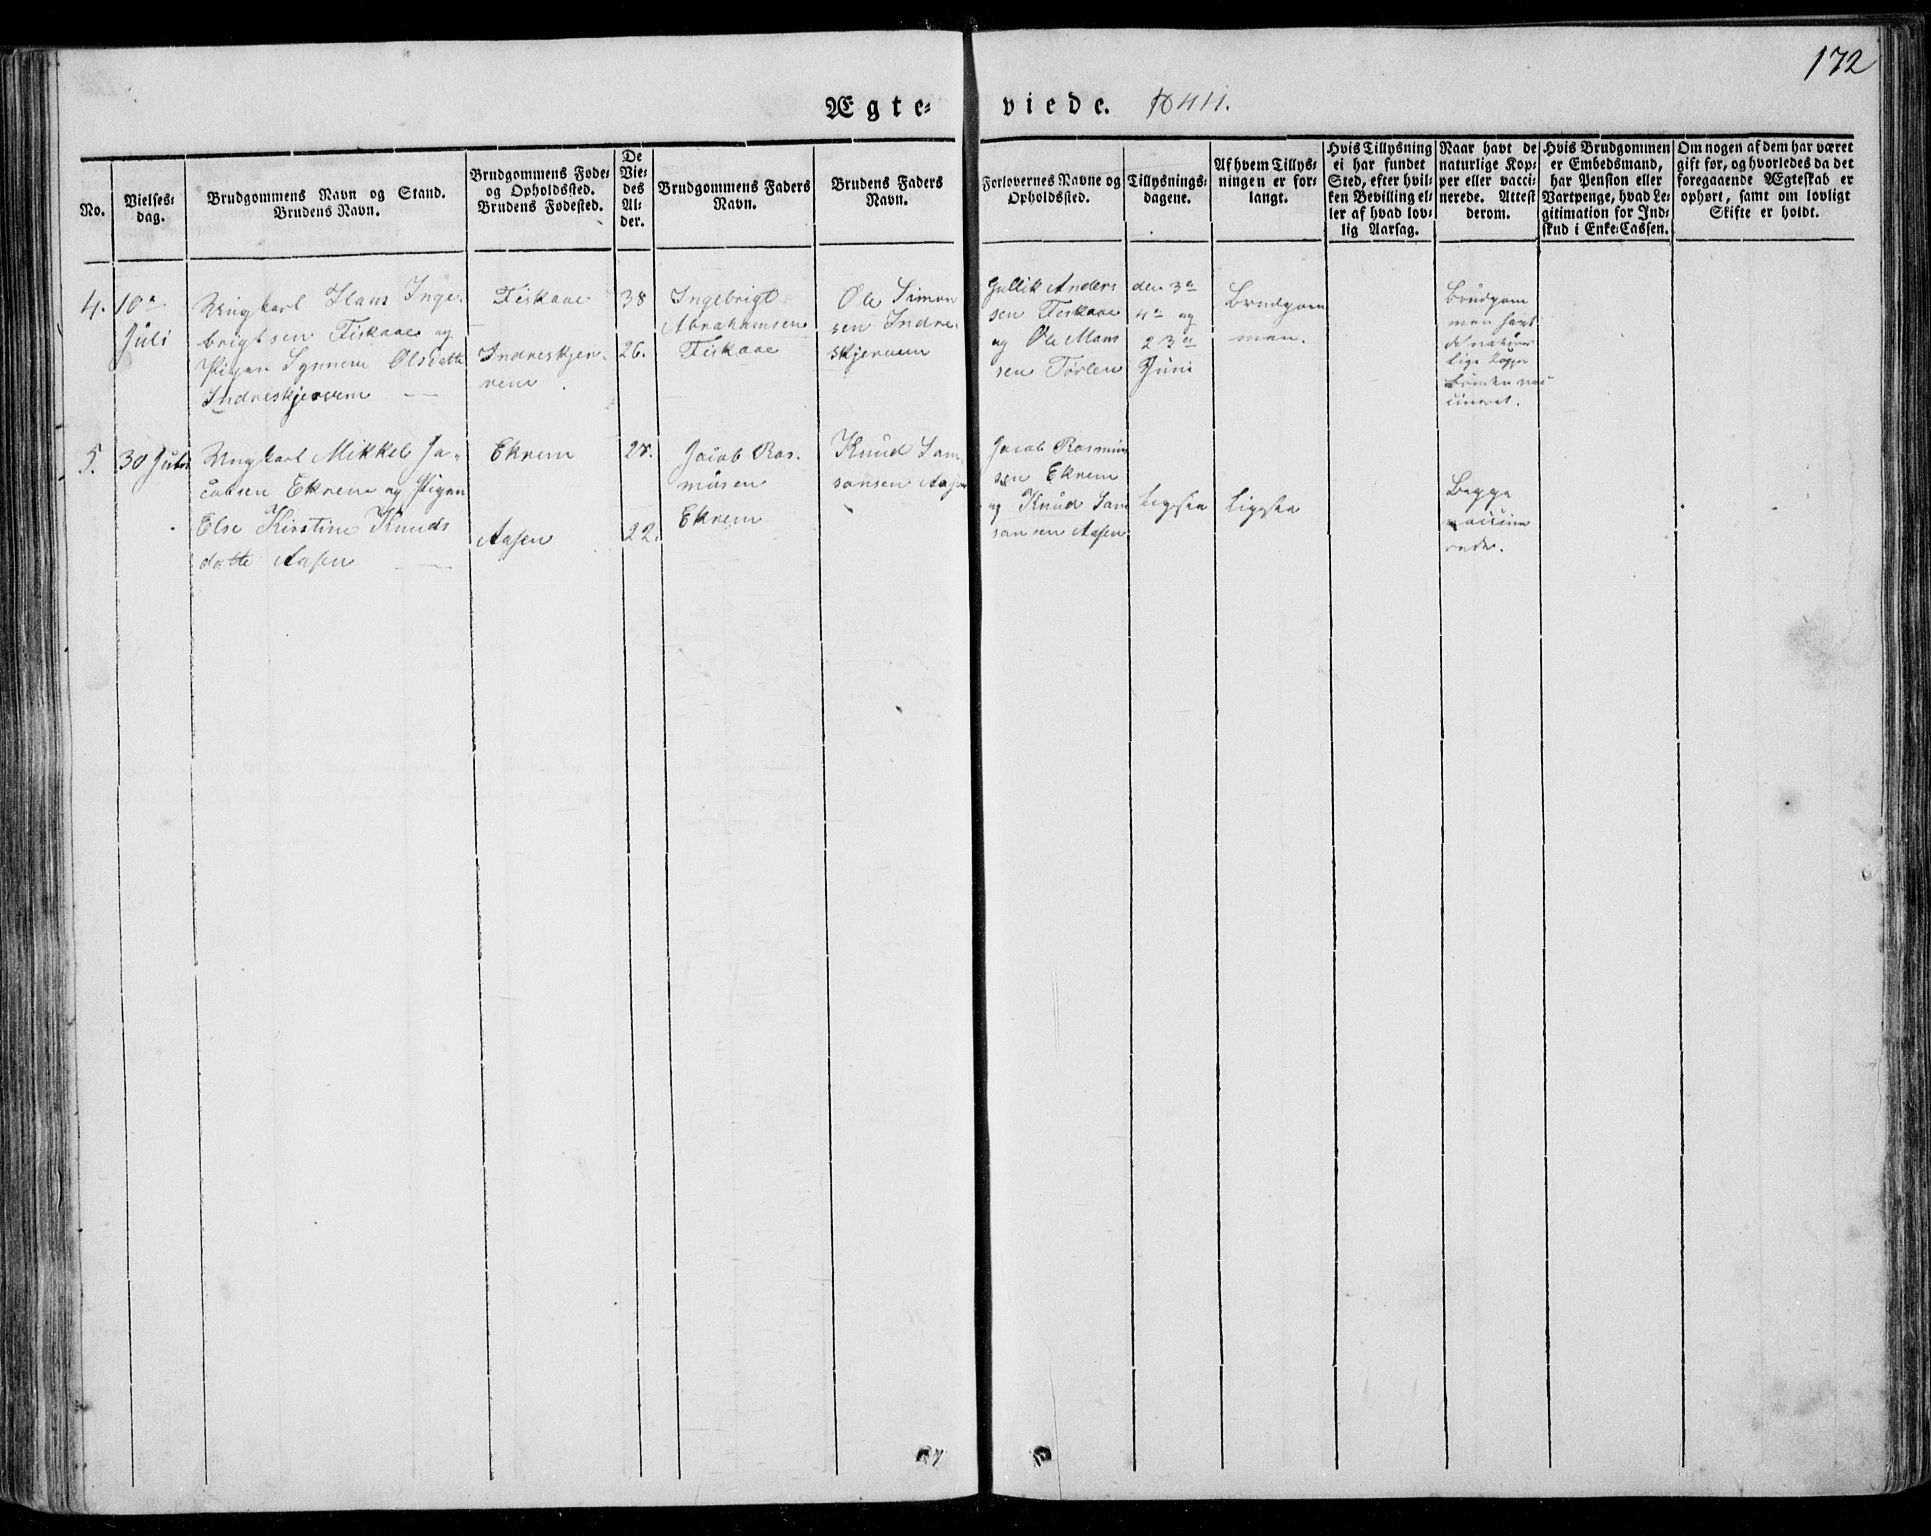 172
Ægte-viede. 1841.
No.
Vielses-
dag.
Brudgommens Navn og Stand.
Brudens Navn.
Brudgommens Føde-
og Opholdssted.
Brudens Fødested.
De
Vie-
des
Al-
der.
Brudgommens Faders
Navn.
Brudens Faders
Navn.
Forlovernes Navne og
Opholdssted.
Tillysnings-
dagene.
Af hvem Tillys-
ningen er for-
langt.
Hvis Tillysning
ei har fundet
Sted, efter hvil-
ken Bevilling el-
ler af hvad lov-
lig Aarsag.
Naar havt de
naturlige Kop-
per eller vacci-
nerede. Attest
derom.
Hvis Brudgommen
er Embedsmand,
har Pension eller
Vartpenge, hvad Le-
gitimation for Ind-
skud i Enke-Cassen.
Om nogen af dem har været
gift før, og hvorledes da det
foregaaende Ægteskab er
ophørt, samt om lovligt
Skifte er holdt.
4.
10de
Juli
Ungkarl Hans Inge-
brigtsen Fiskaae og
Pigen Synneve Olsdatte
Indreskjervem
Fiskaae
Indreskjer-
vem
38
26.
Ingebrigt
Abrahamsen
Fiskaae
Ole Simon
sen Indre-
skjervem
Gullik Anders
sen Fiskaae
og Ole Mons
sen Torlen
den 3de
4de og
23de
Juni
Brudgom
men.
Brudgom
men havt
de natur
lige Kopper
Bruden vac
cineret.
5.
30 Juli
Ungkarl Mikkel Ja-
cobsen Ekrem og Pigen
Else Kirstine Knuds
datte Aasen
Ekrem
Aasen
28.
22.
Jacob Ras-
musen
Ekrem
Knud Sam-
sonsen Aasen
Jacob Rasmus
sen Ekrem
og Knud Sam
son sen Aasen
Ligesaa
Ligesaa
Begge
vaccine
rede.